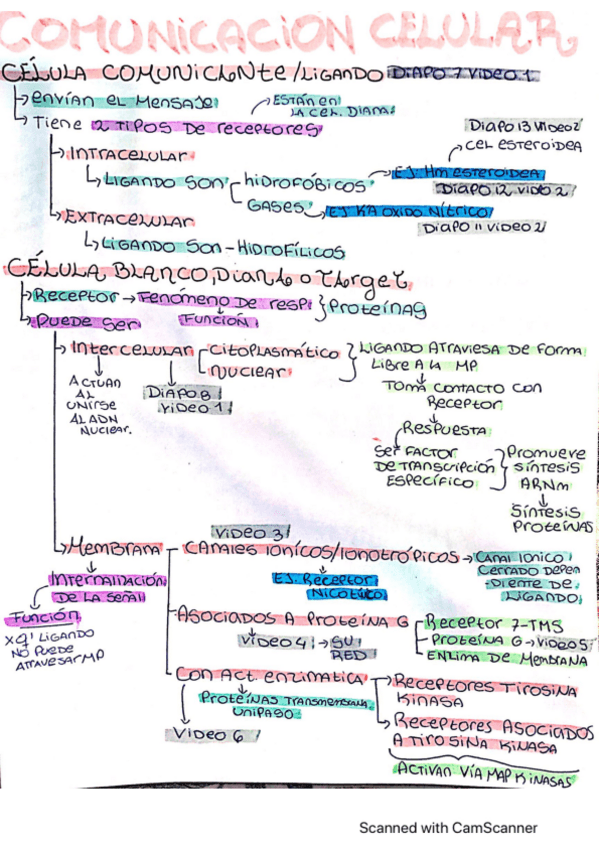 COMUNICACION CELULAR
CÉLULA COMUNICANTE/LIGANDO DIAPO 7 VIDEO 1
ENVÍAN EL MENSAJE
TIENE 2 TIPOS DE RECEPTORES
ESTÁN EN
LA CEL. DIANA
DIAPO 13 VIDEO 2
CEL ESTEROIDEA
INTRACELULAR
LIGANDO SON
HIDROFÓBICOS
EJ. HM ESTEROIDEA
DIAPO 12 VIDEO 2
GASES
EJ KA OXIDO NÍTRICO
DIAPO 11 VIDEO 2
EXTRACELULAR
LIGANDO SON - HIDROFÍLICOS
CÉLULA BLANCO, DIANA O TARGET
RECEPTOR → FENÓMENO DE RESP. } PROTEÍNAS
FUNCIÓN
PUEDE SER
INTERCELULAR
CITOPLASMÁTICO
NUCLEAR
LIGANDO ATRAVIESA DE FORMA
LIBRE A LA MP
TOMA CONTACTO CON
RECEPTOR
RESPUESTA
SER FACTOR
DE TRANSCRIPCIÓN
ESPECÍFICO
PROMUEVE
SÍNTESIS
ARNm
SÍNTESIS
PROTEÍNAS
ACTUAN
AL
UNIRSE
AL ADN
NUCLEAR.
DIAPO 8
VIDEO 1
VIDEO 3
MEMBRANA
CANALES IONÍCOS/IONOTRÓPICOS → CANAL IONICO
CERRADO DEPEN
-DIENTE DE
LIGANDO
EJ. RECEPTOR
NICOTÍNICO
INTERNALIZACIÓN
DE LA SEÑAL
FUNCIÓN
X Q' LIGANDO
NO PUEDE
ATRAVESAR MP
ASOCIADOS A PROTEÍNA G
VIDEO 4 → SU
RED
RECEPTOR 7-TMS
PROTEÍNA G → VIDEO 5
ENZIMA DE MEMBRANA
CON ACT. ENZIMATICA
PROTEÍNAS TRANSMEMBRANA
UNIPASO
VIDEO 6
RECEPTORES TIROSINA
KINASA
RECEPTORES ASOCIADOS
A TIROSINA KINASA
ACTIVAN VÍA MAP KINASAS
Scanned with CamScanner